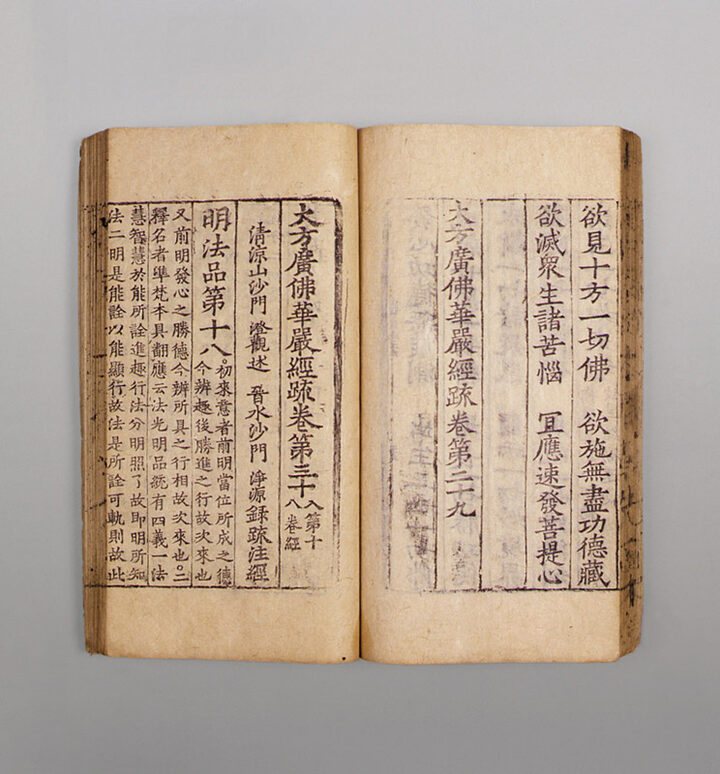 欲見十方一切佛　欲施無盡功德藏
欲滅衆生諸苦惱　冝應速發菩提心
大方廣佛華嚴經䟽卷第二十九
大方廣佛華嚴經䟽卷第三十
入第十
八卷經
清涼山沙門　澄觀述　晉水沙門　淨源錄疏注經
明法品第十八
初來意者前明當位所成之德
今辨趣後勝進之行故次來也
又前明發心之勝德今辨所具之行相故次來也二
釋名者準梵本具翻應云法光明品統有四義一法
慧智慧於能所詮進趣行法分明照了故即明所知
法二明是能詮以能顯行故法是所詮可軌則故此